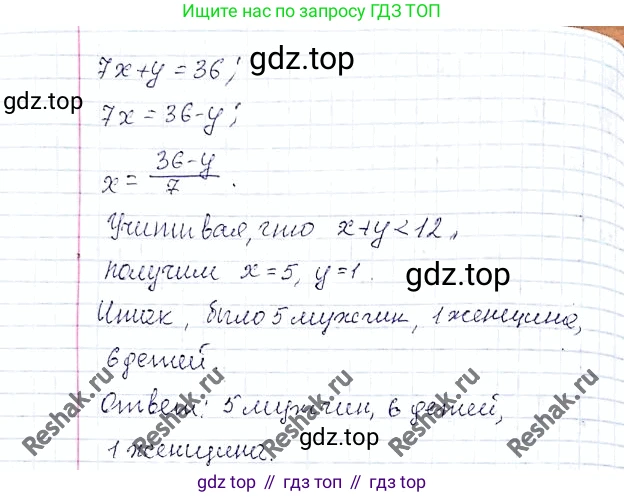 Ищите нас по запросу ГДЗ ТОП
7x+y=36;
gdz.top
gdz.top
7x=36-y;
x=\frac{36-y}{7}.
Учитывая, что x+y<12,
получим x=5, y=1.
gdz.top
Итак, было 5 мужчин, 1 женщина,
6 детей.
Reshak.ru
Reshak.ru
Reshak.ru
Ответ: 5 мужчин, 6 детей,
gdz.top
1 женщина.
gdz top // гдз топ // gdz.top